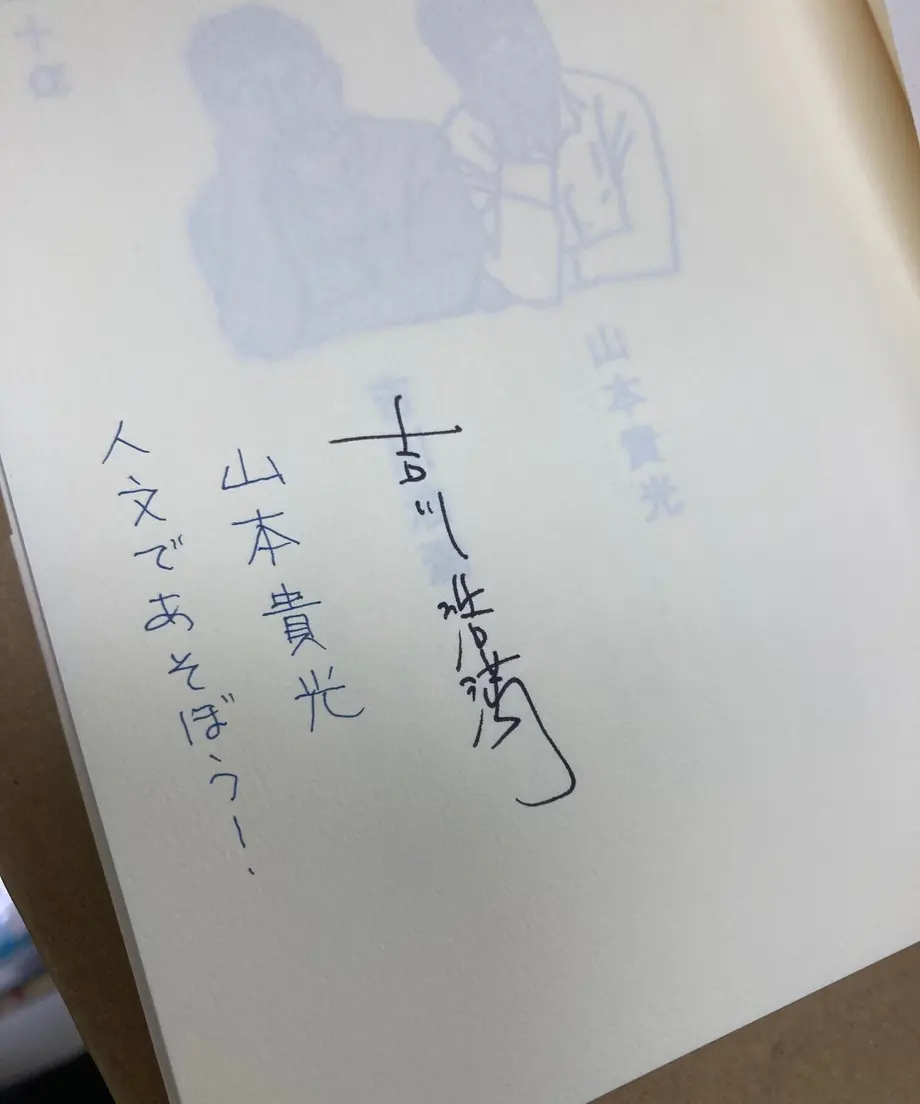 山本貴光
吉川浩満
山本貴光
人文であそぼう!
+α